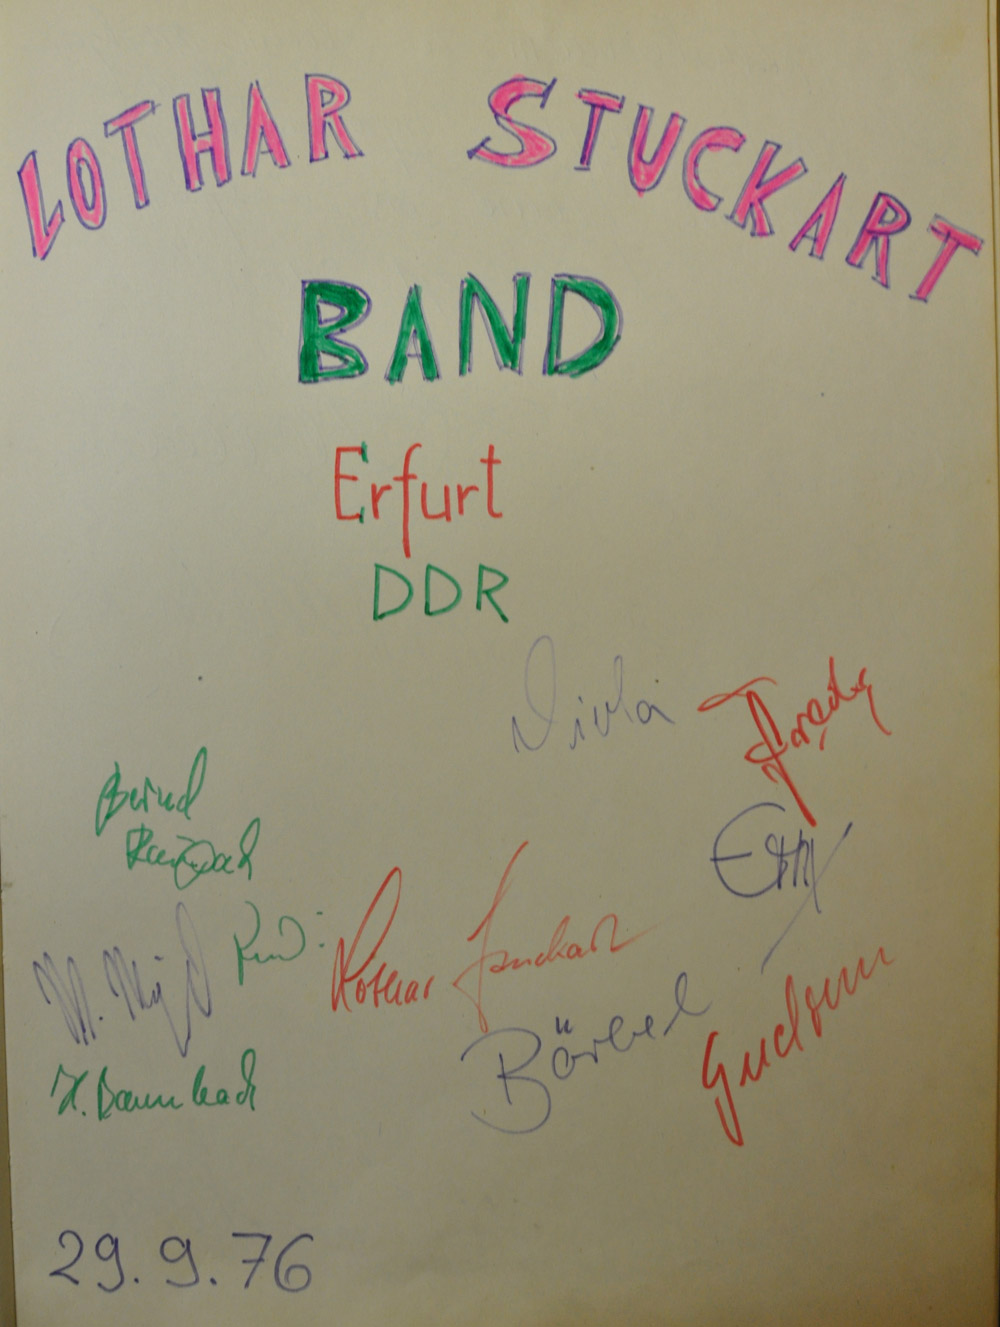 LOTHAR STUCKART
BAND
Erfurt
DDR
Bernd
Lothar Stuckart
Bärbel
Gudrun
H. Baumbach
29.9.76